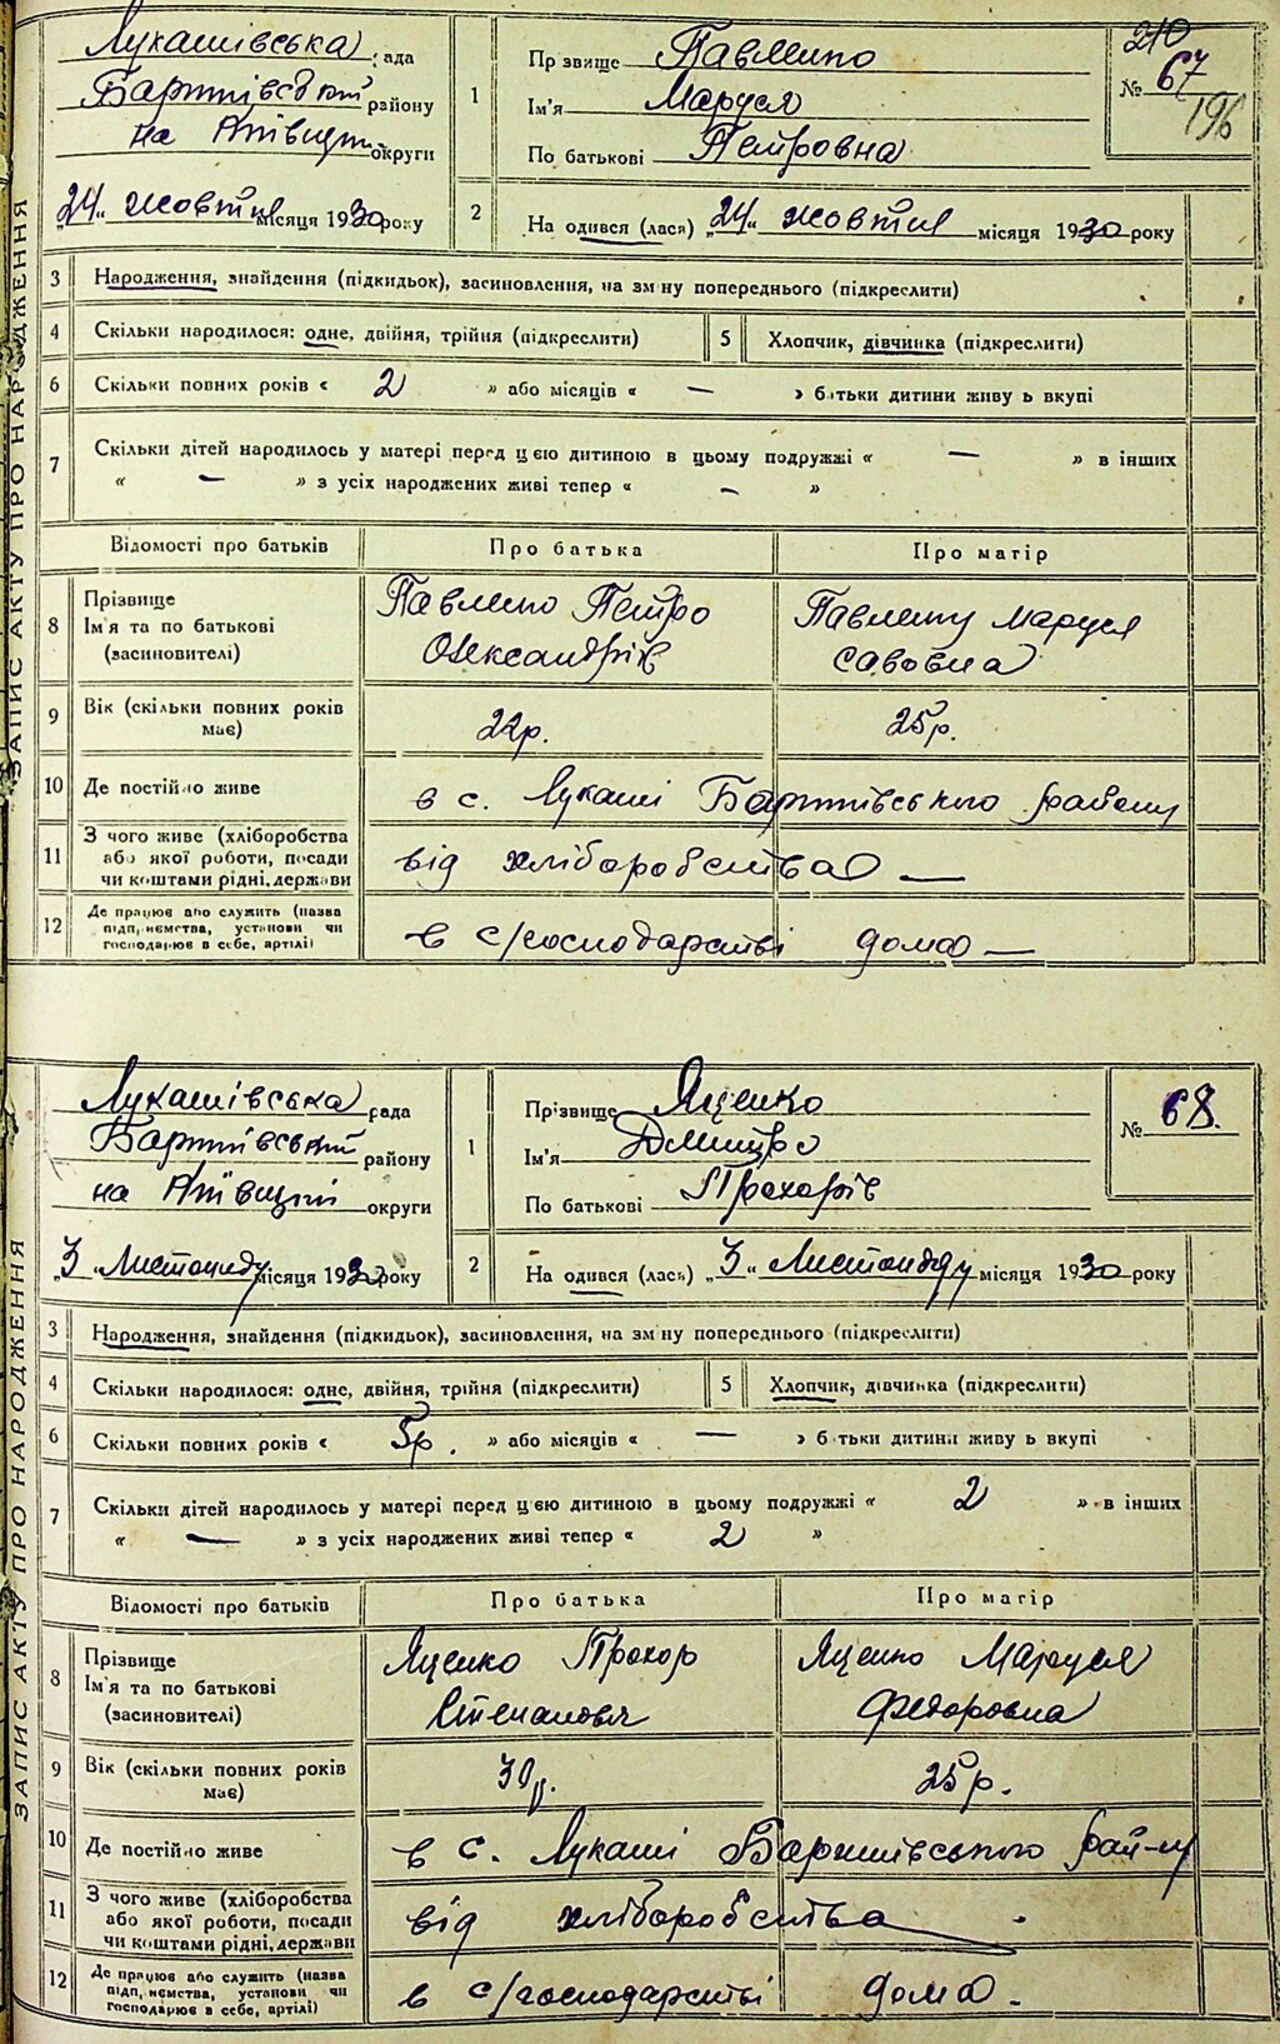 ЗАПИС АКТУ ПРО НАРОДЖЕННЯ
Лукашівська рада
району
на округи
„24“ жовтня місяця 1930 року
1
Прізвище Павленко
Ім'я Маруся
По батькові Петровна
210
№ 67
196
2
На одився (лася) „24“ жовтня місяця 1930 року
3 Народження, знайдення (підкидьок), засиновлення, на зм ну попереднього (підкреслити)
4 Скільки народилося: одне, двійня, трійня (підкреслити)
5 Хлопчик, дівчинка (підкреслити)
6 Скільки повних років « 2 » або місяців « — » батьки дитини живу ь вкупі
7 Скільки дітей народилось у матері перед цією дитиною в цьому подружжі « — » в інших
« — » з усіх народжених живі тепер « — »
Відомості про батьків Про батька Про матір
8 Прізвище Ім'я та по батькові (засиновителі)
Павленко Петро Олександрів
Павленко Маруся Савовна
9 Вік (скільки повних років має) 22р. 25р.
10 Де постійно живе в с. Лукаші району
11 З чого живе (хліборобства або якої роботи, посади чи коштами рідні, держави
від хліборобства —
12 Де працює або служить (назва підп, иємства, установи чи господарює в себе, артілі)
в с/господарстві дома —
ЗАПИС АКТУ ПРО НАРОДЖЕННЯ
Лукашівська рада
району
на округи
„3“ Листопаду місяця 1930 року
1
Прізвище Яценко
Ім'я Дмитро
По батькові Прохорів
№ 68.
2
На одився (лась) „3“ Листопаду місяця 1930 року
3 Народження, знайдення (підкидьок), засиновлення, на зм ну попереднього (підкреслити)
4 Скільки народилося: одне, двійня, трійня (підкреслити)
5 Хлопчик, дівчинка (підкреслити)
6 Скільки повних років « 5р. » або місяців « — » б тьки дитини живу ь вкупі
7 Скільки дітей народилось у матері перед цією дитиною в цьому подружжі « 2 » в інших
« — » з усіх народжених живі тепер « 2 »
Відомості про батьків Про батька Про матір
8 Прізвище Ім'я та по батькові (засиновителі)
Яценко Прохор Степанович
Яценко Маруся Федоровна
9 Вік (скільки повних років має) 30р. 25р.
10 Де постійно живе в с. Лукаші рай-ну
11 З чого живе (хліборобства або якої роботи, посади чи коштами рідні, держави
від хліборобства
12 Де працює або служить (назва підп, иємства, установи чи господарює в себе, артілі)
в с/господарстві дома.